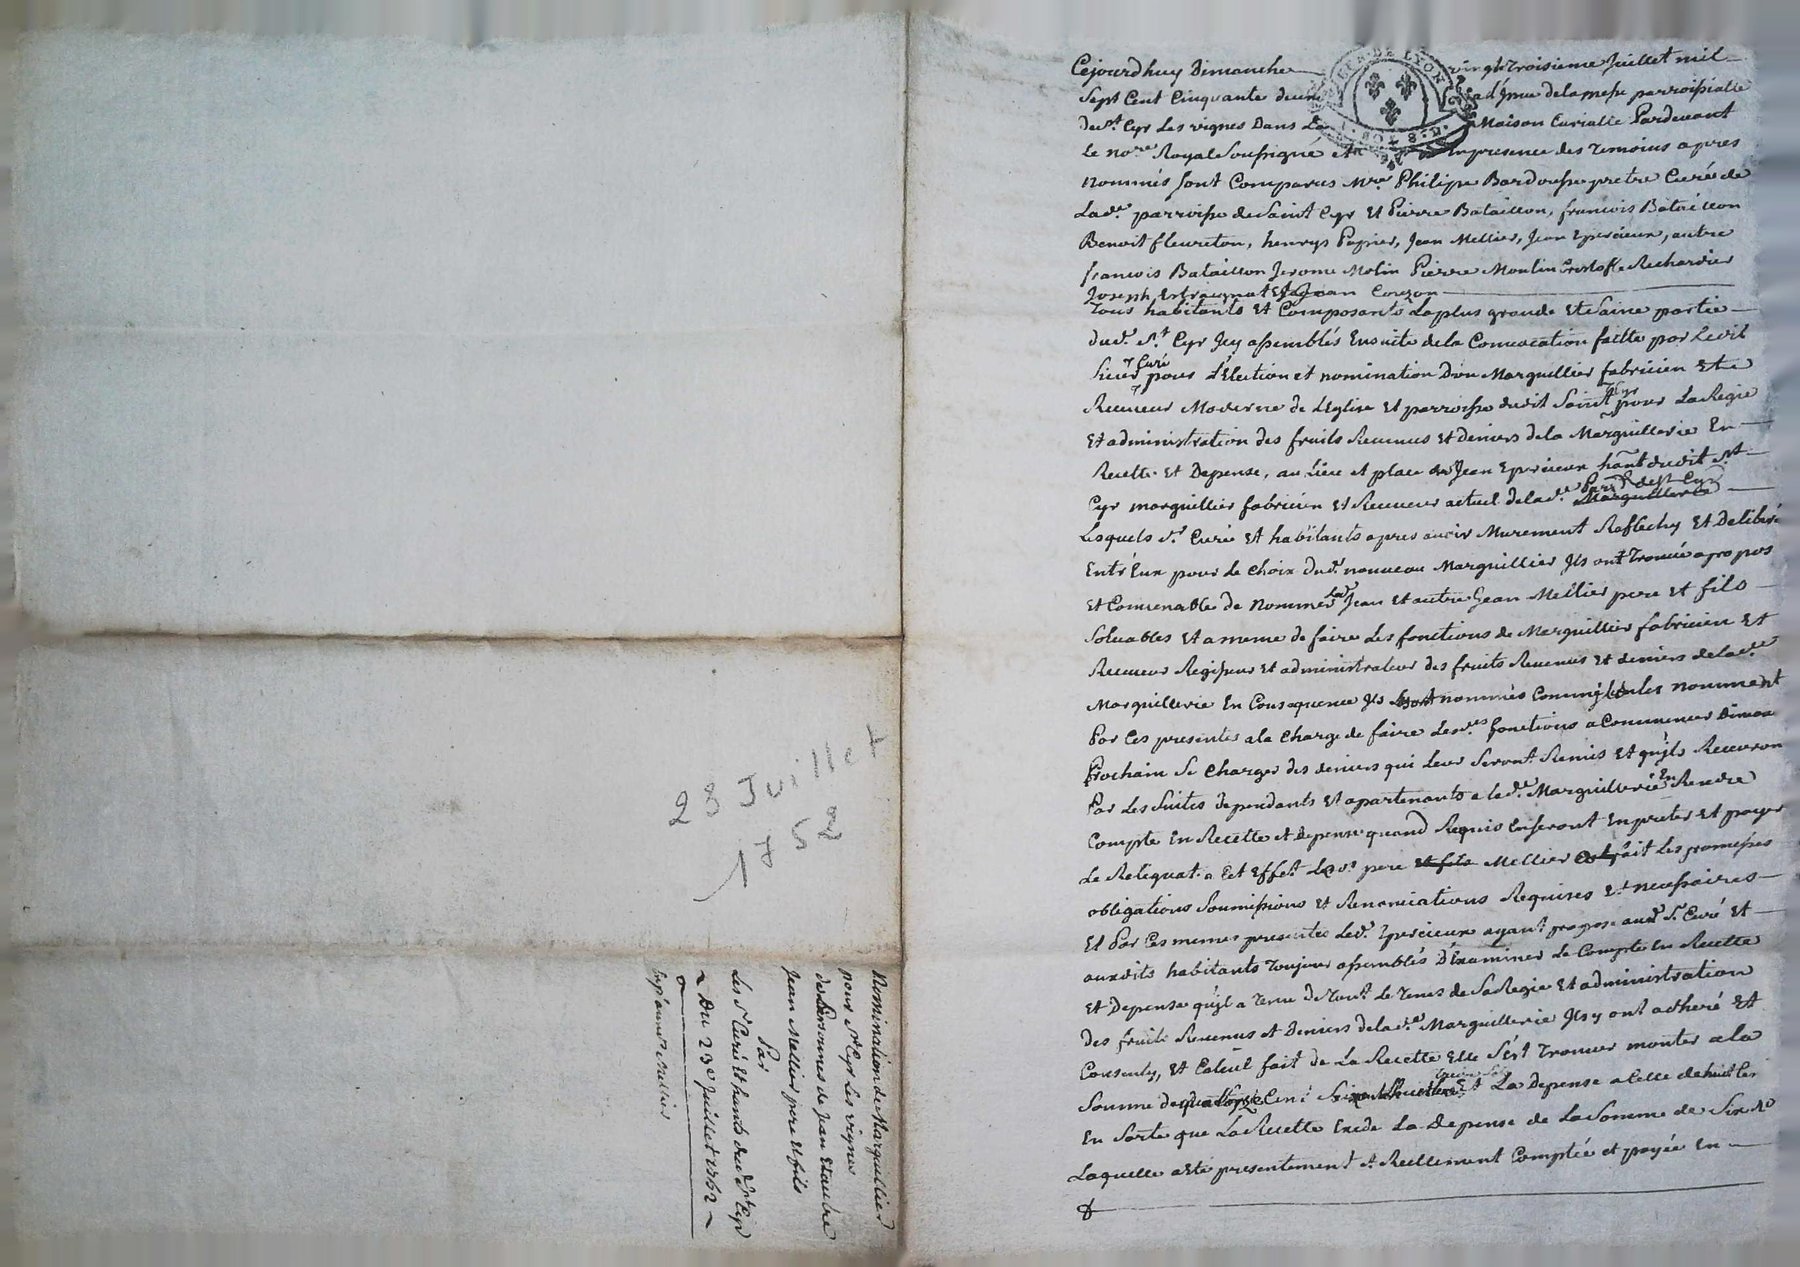 23 Juillet
1762
Nomination de Marguillier
pour St Cyr Les vignes
de Personnes de Jean Et autre
Jean Mellier pere Et fils
Par
Les Sr Curé Et hants dud. St Cyr
Du 23e Juillet 1762
GENERALITE DE LYON
Cejourdhuy Dimanche vingt troisieme Juillet mil
Sept Cent Cinquante deux issue de la messe parroissialle
de St Cyr Les vignes Dans La Maison Curialle Pardevant
Le nore Royal Soussigné Et En presence des Temoins apres
nommés sont Comparus Mre Philipe Bardousse pretre Curé de
Lade parroisse de Saint Cyr Et Pierre Bataillon, francois Bataillon
Benoit fleureton, henrys Papier, Jean Mellier, Jean Epercieux, autre
francois Bataillon Jerome Molin Pierre Moulin Cristofle Rechardier
Joseph Jean Couzon
Tous habitants Et Composants La plus grande Et Saine partie
dud. St Cyr Icy assemblés Ensuite de la Convocation faitte par Ledit
Sieur Curé pour L'Election et nomination D'un Marguillier fabricien Et
Receveur Moderne de L'Eglise Et parroisse dudit Saint Cyr pour La Regie
Et administration des fruits Revenus Et Deniers de la Marguillerie En
Recette Et Depense, au Lieu et place de Jean Epercieux hant dudit St
Cyr marguillier fabricien Et Receveur actuel de lade Marguillerie Parr de St Cyr
Lesquels Sr Curé Et habitants apres avoir Murement Reflechy Et Deliberé
Entr Eux pour Le Choix dud. nouveau Marguillier Ils ont Trouvé apropos
Et Convenable de nommer led Jean Et autre Jean Mellier pere Et fils
Solvables Et a meme de faire Les fonctions de Marguillier fabricien Et
Receveur Regisseur Et administrateur des fruits Revenus Et deniers de lade
Marguillerie En Consequence Ils nommés Comme Les nomment
Par Ces presentes a la Charge de faire Lesdes fonctions a Commencer Diman
Prochain Se Charger des deniers qui Leur Seront Remis Et qu'ils Recevron
Par Les Suites dependants Et apartenants a lade Marguillerie En Rendre
Compte En Recette et Depense quand Requis En seront En preter Et payer
Le Reliquat a Cet Effet Leds pere et fils Mellier ont fait Les promesses
obligations Soumissions Et Renonciations Requises Et necessaires
Et Par Ces memes presentes Led. Epercieux ayant proposé aud Sr Curé Et
auxdits habitants Toujour assemblés D'Examiner Le Compte En Recette
Et Depense qu'il a Tenu de Tout Le Tems de Sa Regie Et administration
des fruits Revenus et Deniers de lade Marguillerie Ils y ont adheré Et
Consenty, Et Calcul fait de La Recette Elle S'est Trouver monter a la
Somme de quatorze Cent Et La Depense a Celle de huit Ce
En Sorte que La Recette Excede La Depense de La Somme de Six
Laquelle a Eté presentement Et Reellement Comptée et payée En